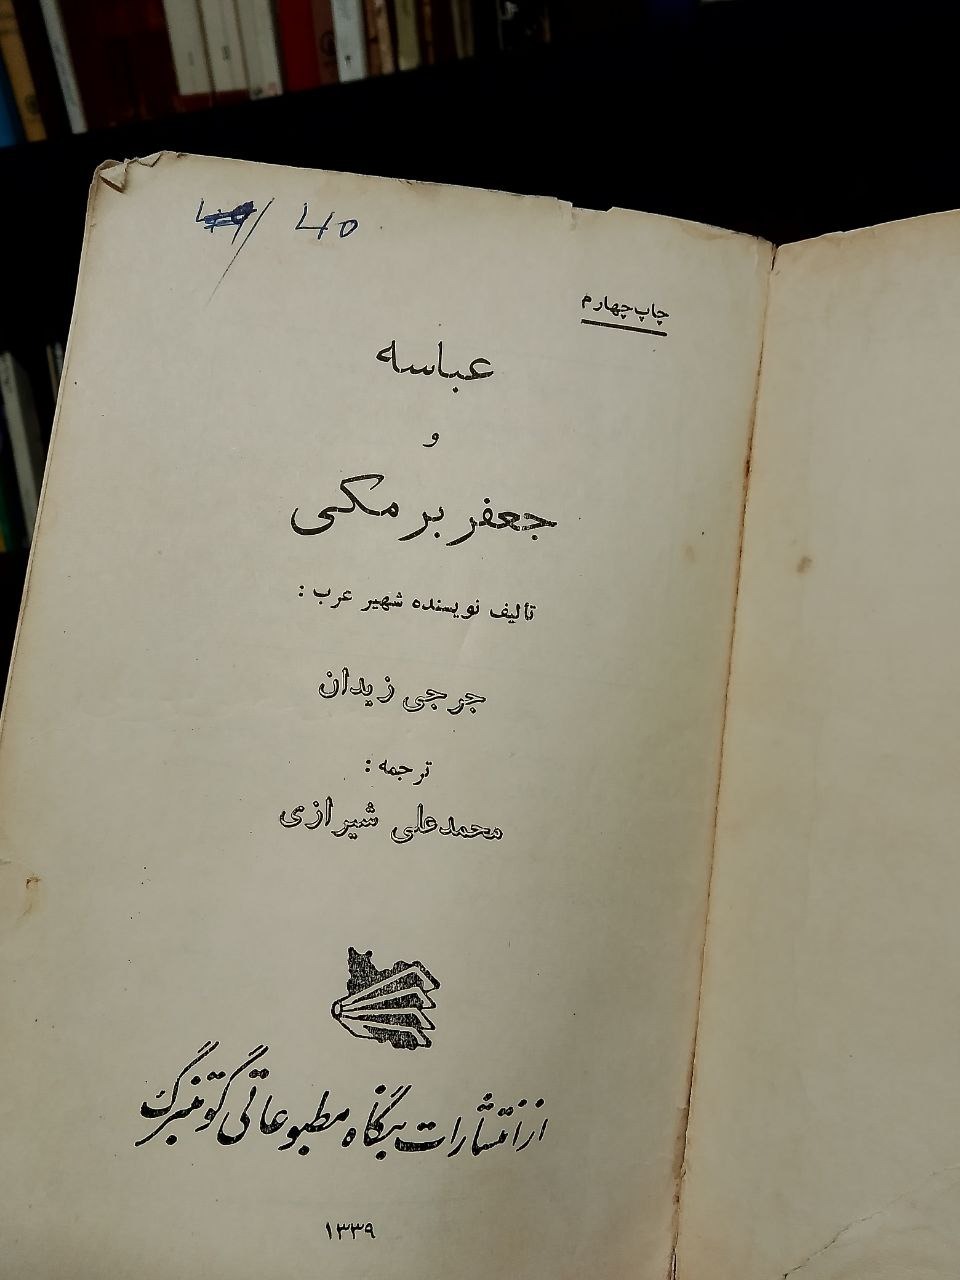 40
چاپ چهارم
عباسه
و
جعفر برمکی
تألیف نویسنده شهیر عرب :
جرجی زیدان
ترجمه :
محمدعلی شیرازی
از انتشارات بنگاه مطبوعاتی گوتنبرگ
۱۳۳۹